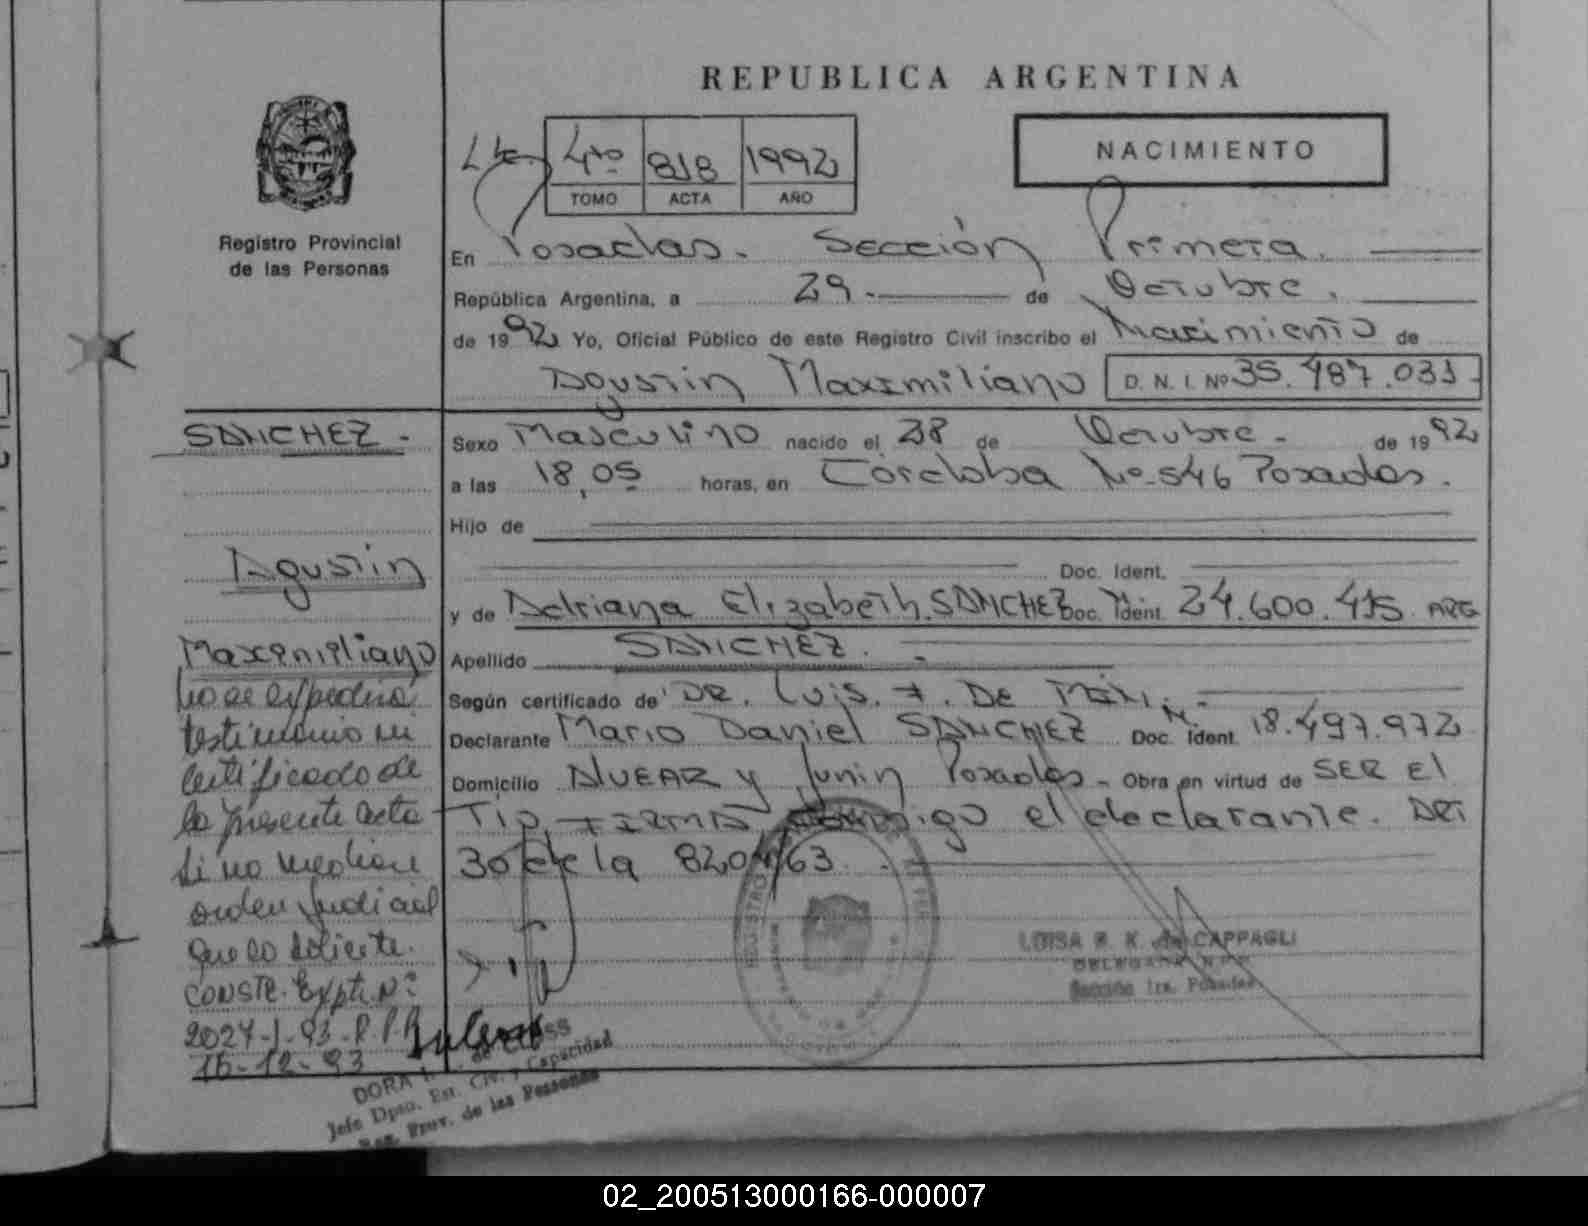 REPUBLICA ARGENTINA
4to 818 1992
TOMO ACTA AÑO
NACIMIENTO
Registro Provincial
de las Personas
En Posadas. Sección Primera.
República Argentina, a 29 de Octubre.
de 1992 Yo, Oficial Público de este Registro Civil inscribo el Nacimiento de
Agustin Maximiliano D. N. I. Nº 35.487.031
SANCHEZ -
Agustin
Maximiliano
no se expedira
testimonio ni
certificado de
la presente acta
si no mediare
orden judicial
que lo solicite.
CONSTE. Expte. Nº
2024-J-93-R.P.P.
16-12-93
Sexo Masculino nacido el 28 de Octubre - de 1992
a las 18,05 horas, en Córdoba Nº 546 Posadas.
Hijo de
Doc. Ident.
y de Adriana Elizabeth. SANCHEZ Doc. Ident. 24.600.415 ARG
Apellido SANCHEZ.
Según certificado de DR. Luis. F. De
Declarante Mario Daniel SANCHEZ Doc. Ident. M. 18.497.972
Domicilio ALVEAR y Junin Posadas - Obra en virtud de SER El
Tio FIRMA conmigo el declarante. ART
30 de la 8204/63.
LUISA R. K. de CAPPAGLI
DELEGADA R.P.P.
Sección 1ra. Posadas
DORA
Jefe Dpto. Est. Civ. y Capacidad
Reg. Prov. de las Personas
02_200513000166-000007